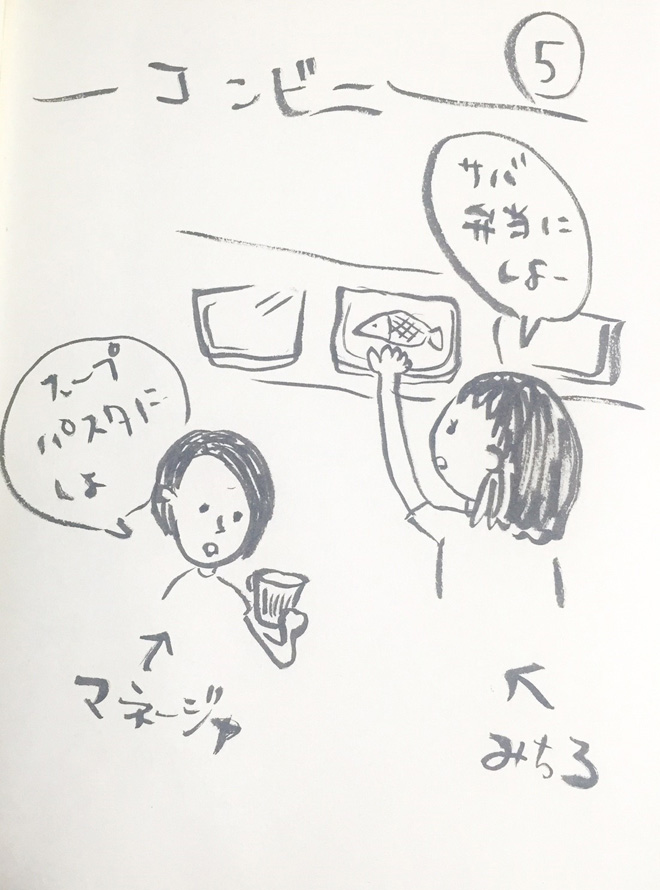 ⑤
ーコンビニー
サバ
弁当に
しよー
スープ
パスタに
しよ
マネージャ
みちろ